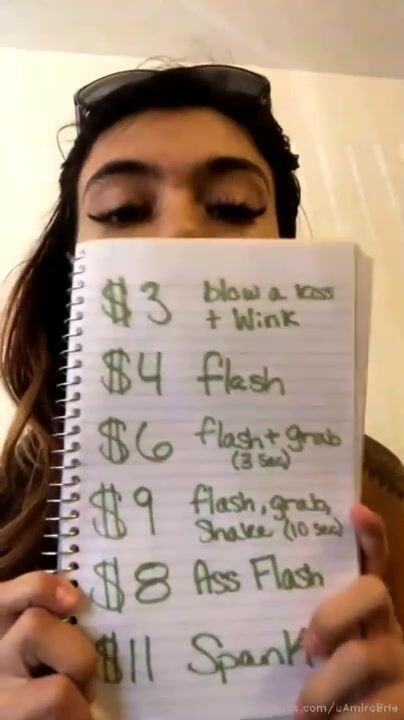 $3 blow a kiss
+ Wink
$4 flash
$6 flash + grab
(3 sec)
$9 flash, grab,
Shake (10 sec)
$8 Ass Flash
$11 Spank
.com/uAmiraBrie